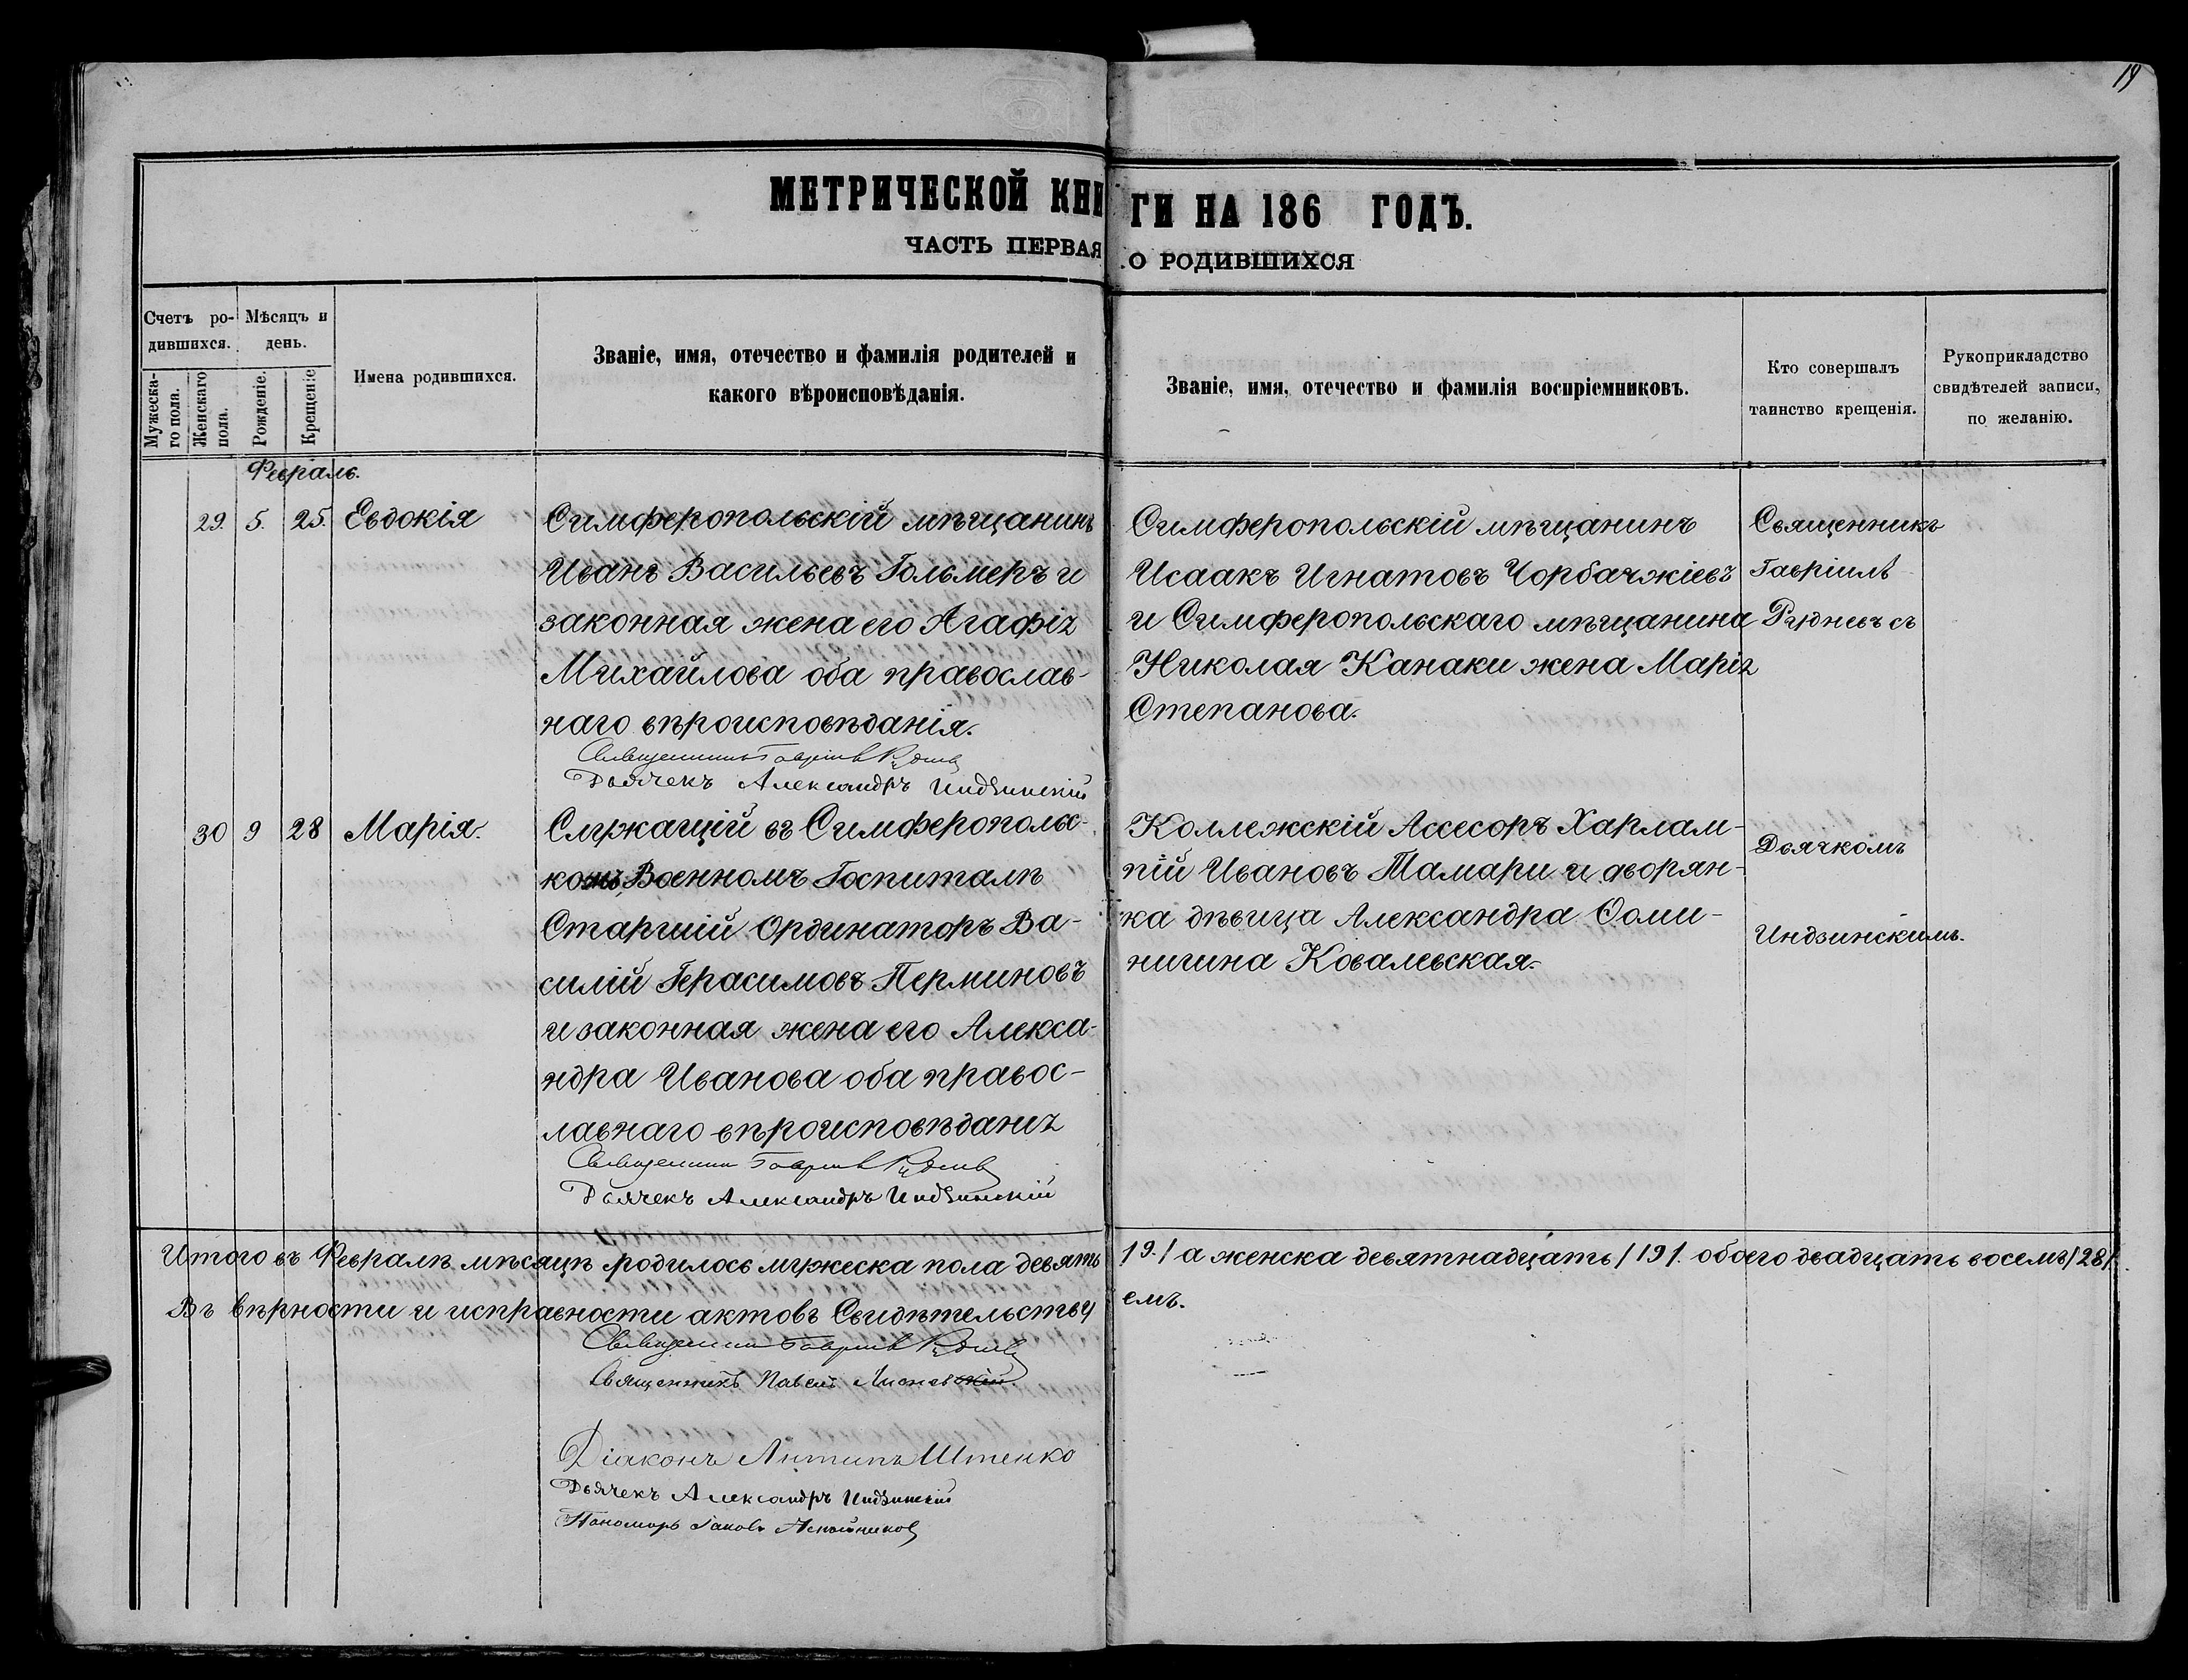 19
МЕТРИЧЕСКОЙ КНИГИ НА 186 ГОДЪ.
ЧАСТЬ ПЕРВАЯ О РОДИВШИХСЯ
Счетъ ро-
дившихся.
Мужеска-
го пола.
Женскаго
пола.
Мѣсяцъ и
день.
Рожденіе.
Крещеніе
Имена родившихся.
Званіе, имя, отечество и фамилія родителей и
какого вѣроисповѣданія.
Званіе, имя, отечество и фамилія воспріемниковъ.
Кто совершалъ
таинство крещенія.
Рукоприкладство
свидѣтелей записи,
по желанію.
Февраль.
29. 5. 25. Евдокія
Симферопольскій мѣщанинъ
Иванъ Васильевъ Гольмеръ и
законная жена его Агафія
Михайлова оба православ-
наго вѣроисповѣданія.
Священникъ Гавріилъ
Дьячекъ Александръ Индзинскій
Симферопольскій мѣщанинъ
Исаакъ Игнатовъ Чорбачжіевъ
и Симферопольскаго мѣщанина
Николая Канаки жена Марія
Степанова.
Священникъ
Гавріилъ
30 9 28 Марія.
Служащій въ Симферопольс-
комъ Военномъ Госпиталѣ
Старшій Ординаторъ Ва-
силій Герасимовъ Перминовъ
и законная жена его Алекса-
ндра Иванова оба правос-
лавнаго вѣроисповѣданія
Священникъ Гавріилъ
Дьячекъ Александръ Индзинскій
Коллежскій Ассесоръ Харлам-
пій Ивановъ Тамари и дворян-
ка дѣвица Александра Ѳоми-
нигина Ковалевская.
Дьячкомъ
Индзинскимъ.
Итого въ Февралѣ мѣсяцѣ родилось мужеска пола девять /9./ а женска девятнадцать /19/. обоего двадцать восемь /28/.
Въ вѣрности и исправности актовъ Свидѣтельствуемъ.
Священникъ Гавріилъ
Священникъ Павелъ
Діаконъ Антипъ Штенко
Дьячекъ Александръ Индзинскій
Пономарь Іаковъ